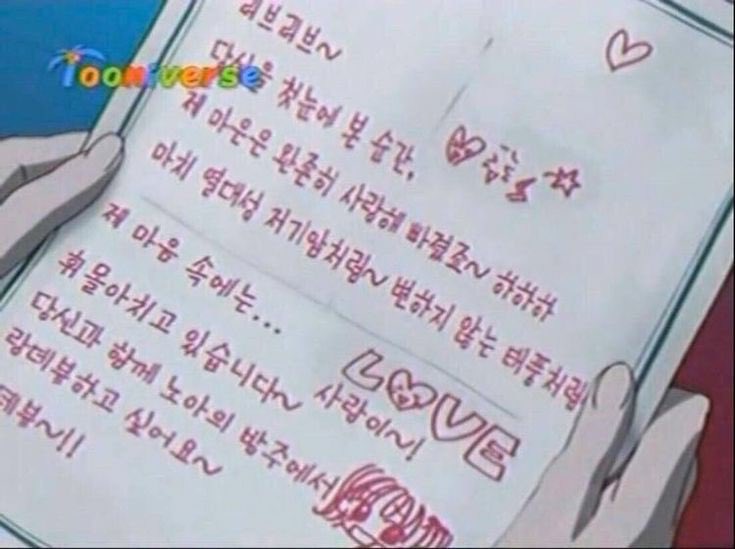 Tooniverse
러브러브~
당신을 첫눈에 본 순간,
제 마음은 완존히 사랑해 빠졌죠~ 하하하
마치 열대성 저기압처럼~ 변하지 않는 태풍처럼
제 마음 속에는...
휘몰아치고 있습니다~ 사랑이~!
LOVE
당신과 함께 노아의 방주에서
랑데뷰하고 싶어요~
데뷰~!!